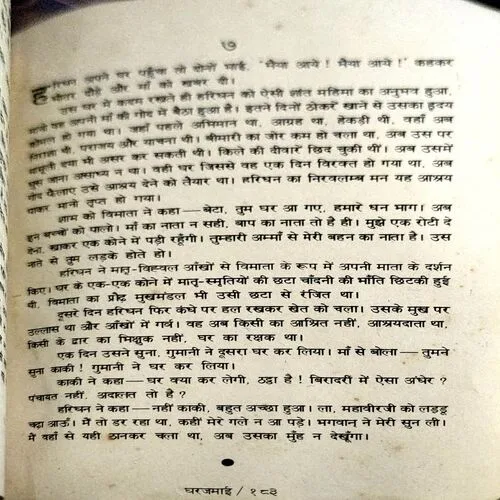 ७
हरिधन अपने घर पहुँचा तो दोनों भाई, "भैया आये! भैया आये!" कहकर
भीतर दौड़े और माँ को खबर दी।
उस घर में कदम रखते ही हरिधन को ऐसी शांत महिमा का अनुभव हुआ,
मानो वह अपनी माँ की गोद में बैठा हुआ है। इतने दिनों ठोकरें खाने से उसका हृदय
कोमल हो गया था। जहाँ पहले अभिमान था, आग्रह था, हेकड़ी थी, वहाँ अब
निराशा थी, पराजय और याचना थी। बीमारी का जोर कम हो चला था, अब उस पर
मामूली दवा भी असर कर सकती थी। किले की दीवारें छिद चुकी थीं। अब उसमें
घुस जाना असाध्य न था। वही घर जिससे वह एक दिन विरक्त हो गया था, अब
गोद फैलाए उसे आश्रय देने को तैयार था। हरिधन का निरवलम्ब मन यह आश्रय
पाकर मानो तृप्त हो गया।
शाम को विमाता ने कहा—बेटा, तुम घर आ गए, हमारे धन भाग। अब
इन बच्चों को पालो। माँ का नाता न सही, बाप का नाता तो है ही। मुझे एक रोटी दे
देना, खाकर एक कोने में पड़ी रहूँगी। तुम्हारी अम्माँ से मेरी बहन का नाता है। उस
नाते से तुम लड़के होते हो।
हरिधन ने मातृ-विह्वल आँखों से विमाता के रूप में अपनी माता के दर्शन
किए। घर के एक-एक कोने में मातृ-स्मृतियों की छटा चाँदनी की भाँति छिटकी हुई
थी, विमाता का प्रौढ़ मुखमंडल भी उसी छटा से रंजित था।
दूसरे दिन हरिधन फिर कंधे पर हल रखकर खेत को चला। उसके मुख पर
उल्लास था और आँखों में गर्व। वह अब किसी का आश्रित नहीं, आश्रयदाता था,
किसी के द्वार का भिक्षुक नहीं, घर का रक्षक था।
एक दिन उसने सुना, गुमानी ने दूसरा घर कर लिया। माँ से बोला—तुमने
सुना काकी! गुमानी ने घर कर लिया।
काकी ने कहा—घर क्या कर लेगी, ठट्ठा है! बिरादरी में ऐसा अंधेर?
पंचायत नहीं, अदालत तो है?
हरिधन ने कहा—नहीं काकी, बहुत अच्छा हुआ। ला, महावीरजी को लड्डू
चढ़ा आऊँ। मैं तो डर रहा था, कहीं मेरे गले न आ पड़े। भगवान् ने मेरी सुन ली।
मैं वहाँ से यही ठानकर चला था, अब उसका मुँह न देखूँगा।
घरजमाई / १८३